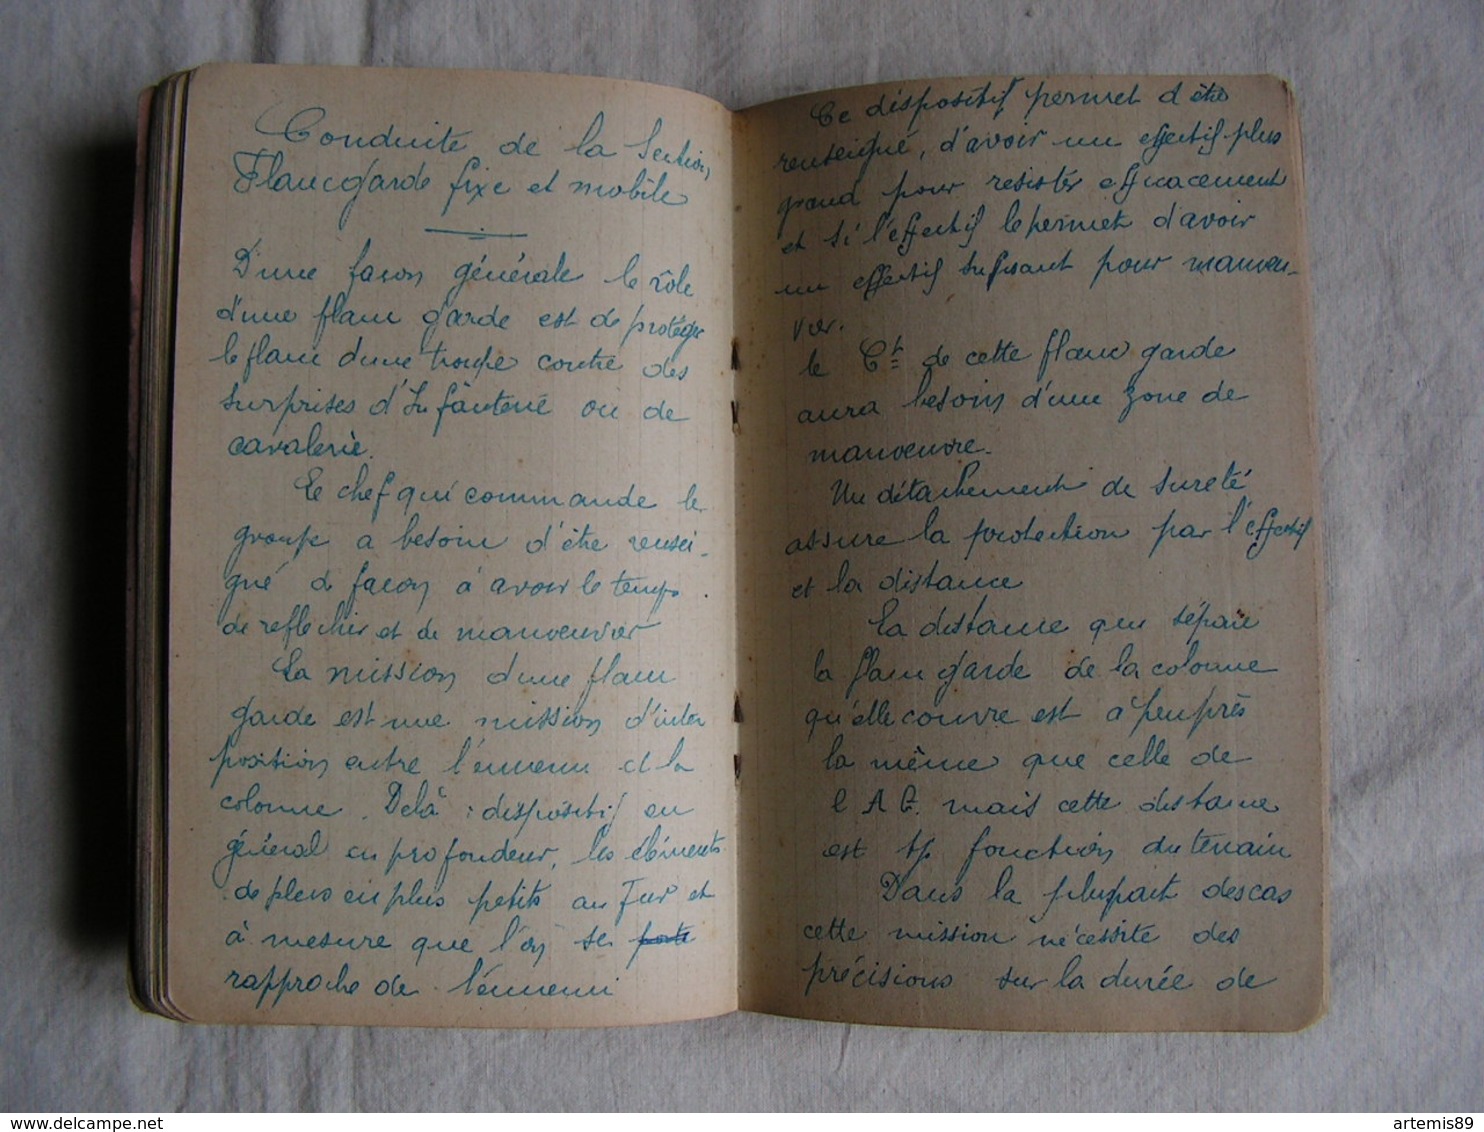 Conduite de la Section
Flancgarde fixe et mobile
D'une façon générale le rôle
d'une flanc garde est de protéger
le flanc d'une troupe contre des
surprises d'Infanterie ou de
cavalerie.
Le chef qui commande le
groupe a besoin d'être rensei-
gné de façon à avoir le temps
de reflechir et de manoeuvrer
La mission d'une flanc
garde est une mission d'inter
position entre l'ennemi et la
colonne. Delà : dispositif en
général en profondeur, les éléments
de plus en plus petits au fur et
à mesure que l'on se porte
rapproche de l'ennemi
Ce dispositif permet d'être
renseigné, d'avoir un effectif plus
grand pour resister efficacement
et si l'effectif le permet d'avoir
un effectif sufisant pour manoeu-
vrer.
le Ct de cette flanc garde
aura besoin d'une zone de
manoeuvre.
Un détachement de sureté
assure la protection par l'effectif
et la distance
La distance qui sépare
la flanc garde de la colonne
qu'elle couvre est a peu près
la même que celle de
l'A G. mais cette distance
est tjs fonction du terrain
Dans la plupart des cas
cette mission nécessite des
précisions sur la durée de
artemis89